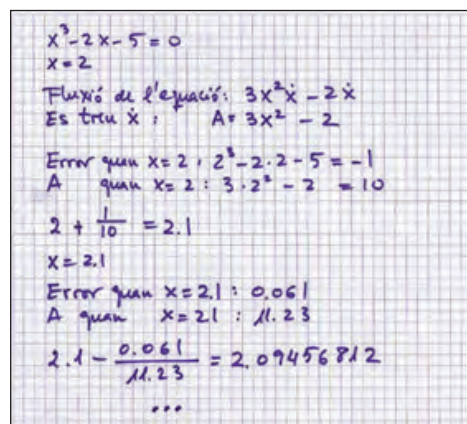 x³-2x-5=0
x=2
Fluxió de l'equació: 3x²ẋ - 2ẋ
Es treu ẋ : A= 3x² - 2
Error quan x=2 : 2³-2·2-5=-1
A quan x=2 : 3·2² - 2 = 10
2 + 1/10 = 2.1
x=2.1
Error quan x=2.1 : 0.061
A quan x=2.1 : 11.23
2.1 - 0.061/11.23 = 2.09456812
...